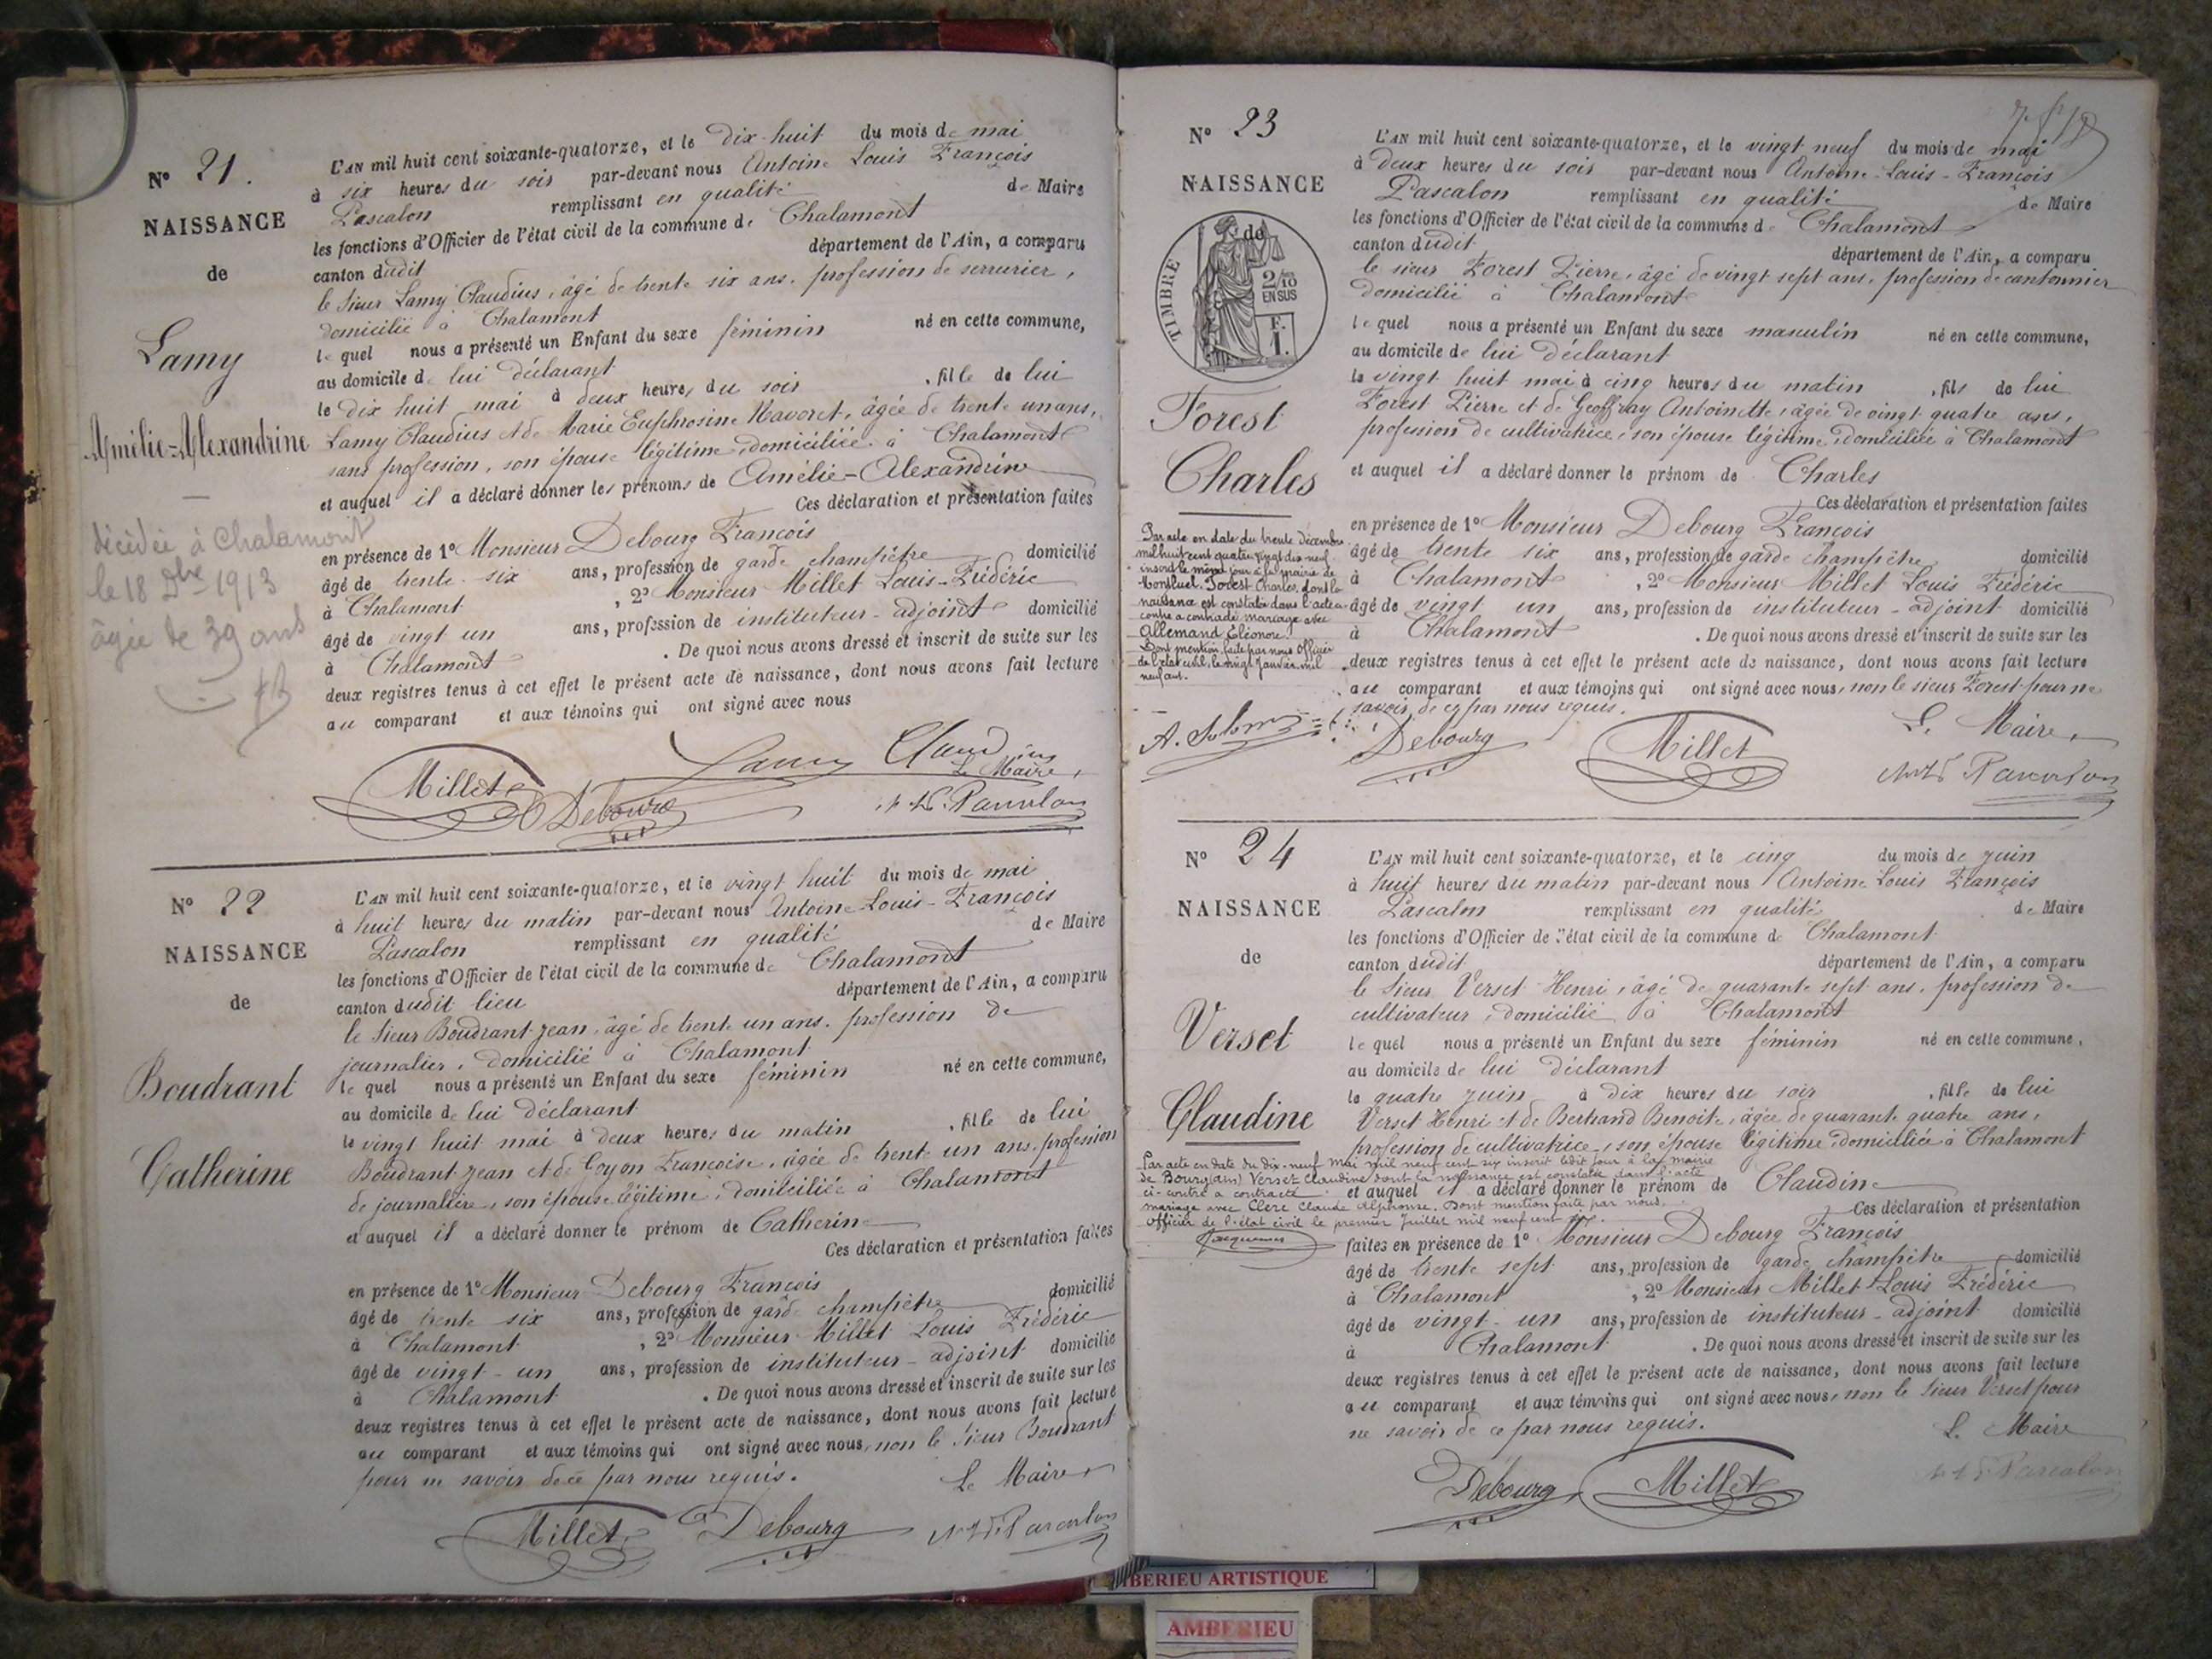 N° 21.
NAISSANCE
de
Lamy
Amélie=Alexandrine
décédée à Chalamont
le 18 Dbre 1913
âgée de 39 ans
L'AN mil huit cent soixante-quatorze, et le dix-huit du mois de mai
à six heures du soir par-devant nous Antoine Louis François
Pascalon remplissant en qualité de Maire
les fonctions d'Officier de l'état civil de la commune de Chalamont
canton dudit département de l'Ain, a comparu
le sieur Lamy Claudius, âgé de trente six ans, profession de serrurier,
domicilié à Chalamont
lequel nous a présenté un Enfant du sexe féminin né en cette commune,
au domicile de lui déclarant
le dix huit mai à deux heures du soir, fille de lui
Lamy Claudius et de Marie Euphrosine Navoret, âgée de trente un ans,
sans profession, son épouse légitime, domiciliée à Chalamont
et auquel il a déclaré donner les prénoms de Amélie-Alexandrine
Ces déclaration et présentation faites
en présence de 1° Monsieur Debourg François
âgé de trente six ans, profession de garde champêtre domicilié
à Chalamont, 2° Monsieur Millet Louis-Frédéric
âgé de vingt un ans, profession de instituteur-adjoint domicilié
à Chalamont. De quoi nous avons dressé et inscrit de suite sur les
deux registres tenus à cet effet le présent acte de naissance, dont nous avons fait lecture
au comparant et aux témoins qui ont signé avec nous
Lamy Claudius
Le Maire,
Millet Debourg Pascalon
N° 22
NAISSANCE
de
Boudrant
Catherine
L'AN mil huit cent soixante-quatorze, et le vingt huit du mois de mai
à huit heures du matin par-devant nous Antoine-Louis-François
Pascalon remplissant en qualité de Maire
les fonctions d'Officier de l'état civil de la commune de Chalamont
canton dudit lieu département de l'Ain, a comparu
le sieur Boudrant Jean, âgé de trente un ans, profession de
journalier, domicilié à Chalamont
lequel nous a présenté un Enfant du sexe féminin né en cette commune,
au domicile de lui déclarant
le vingt huit mai à deux heures du matin, fille de lui
Boudrant Jean et de Goyon Françoise, âgée de trente un ans, profession
de journalière, son épouse légitime, domiciliée à Chalamont
et auquel il a déclaré donner le prénom de Catherine
Ces déclaration et présentation faites
en présence de 1° Monsieur Debourg François
âgé de trente six ans, profession de garde champêtre domicilié
à Chalamont, 2° Monsieur Millet Louis Frédéric
âgé de vingt-un ans, profession de instituteur-adjoint domicilié
à Chalamont. De quoi nous avons dressé et inscrit de suite sur les
deux registres tenus à cet effet le présent acte de naissance, dont nous avons fait lecture
au comparant et aux témoins qui ont signé avec nous, non le sieur Boudrant
pour ne savoir de ce par nous requis.
Le Maire
Millet Debourg Pascalon
N° 23
NAISSANCE
de
TIMBRE
2/10
EN SUS
F.
1.
Forest
Charles
Par acte en date du trente Décembre
mil huit cent quatre vingt dix neuf
inscrit le même jour à la mairie de
Montluel, Forest Charles, dont la
naissance est constatée dans l'acte ci-
contre a contracté mariage avec
Allemand Eléonore.
Dont mention faite par nous Officier
de l'état civil, le vingt Janvier mil
neuf cent.
L'AN mil huit cent soixante-quatorze, et le vingt neuf du mois de mai
à deux heures du soir par-devant nous Antoine-Louis-François
Pascalon remplissant en qualité de Maire
les fonctions d'Officier de l'état civil de la commune de Chalamont
canton dudit département de l'Ain, a comparu
le sieur Forest Pierre, âgé de vingt sept ans, profession de cantonnier
domicilié à Chalamont
lequel nous a présenté un Enfant du sexe masculin né en cette commune,
au domicile de lui déclarant
le vingt huit mai à cinq heures du matin, fils de lui
Forest Pierre et de Geoffray Antoinette, âgée de vingt quatre ans,
profession de cultivatrice, son épouse légitime, domiciliée à Chalamont
et auquel il a déclaré donner le prénom de Charles
Ces déclaration et présentation faites
en présence de 1° Monsieur Debourg François
âgé de trente six ans, profession de garde champêtre domicilié
à Chalamont, 2° Monsieur Millet Louis Frédéric
âgé de vingt un ans, profession de instituteur-adjoint domicilié
à Chalamont. De quoi nous avons dressé et inscrit de suite sur les
deux registres tenus à cet effet le présent acte de naissance, dont nous avons fait lecture
au comparant et aux témoins qui ont signé avec nous, non le sieur Forest pour ne
savoir de ce par nous requis.
Le Maire,
Debourg Millet Pascalon
N° 24
NAISSANCE
de
Verset
Claudine
L'AN mil huit cent soixante-quatorze, et le cinq du mois de juin
à huit heures du matin par-devant nous Antoine Louis François
Pascalon remplissant en qualité de Maire
les fonctions d'Officier de l'état civil de la commune de Chalamont
canton dudit département de l'Ain, a comparu
le sieur Verset Henri, âgé de quarante sept ans, profession de
cultivateur, domicilié à Chalamont
lequel nous a présenté un Enfant du sexe féminin né en cette commune,
au domicile de lui déclarant
le quatre juin à dix heures du soir, fille de lui
Verset Henri et de Berthand Benoite, âgée de quarante quatre ans,
profession de cultivatrice, son épouse légitime, domiciliée à Chalamont
Par acte en date du dix-neuf Mai mil neuf cent six inscrit ledit jour à la mairie
de Bourg (Ain) Verset Claudine dont la naissance est constatée dans l'acte
ci-contre a contracté
mariage avec Clerc Claude Alphonse. Dont mention faite par nous,
Officier de l'état civil le premier Juillet mil neuf cent six.
et auquel il a déclaré donner le prénom de Claudine
Ces déclaration et présentation
faites en présence de 1° Monsieur Debourg François
âgé de trente sept ans, profession de garde champêtre domicilié
à Chalamont, 2° Monsieur Millet Louis Frédéric
âgé de vingt-un ans, profession de instituteur-adjoint domicilié
à Chalamont. De quoi nous avons dressé et inscrit de suite sur les
deux registres tenus à cet effet le présent acte de naissance, dont nous avons fait lecture
au comparant et aux témoins qui ont signé avec nous, non le sieur Verset pour
ne savoir de ce par nous requis.
Le Maire
Debourg Millet Pascalon
BERIEU ARTISTIQUE
AMBERIEU